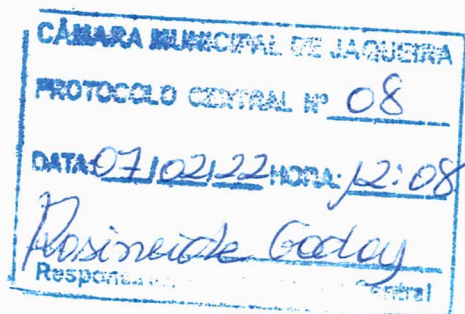 CÂMARA MUNICIPAL DE JAQUEIRA
PROTOCOLO CENTRAL Nº 08
DATA: 07/02/22 HORA: 12:08
Rosineide Godoy
Central